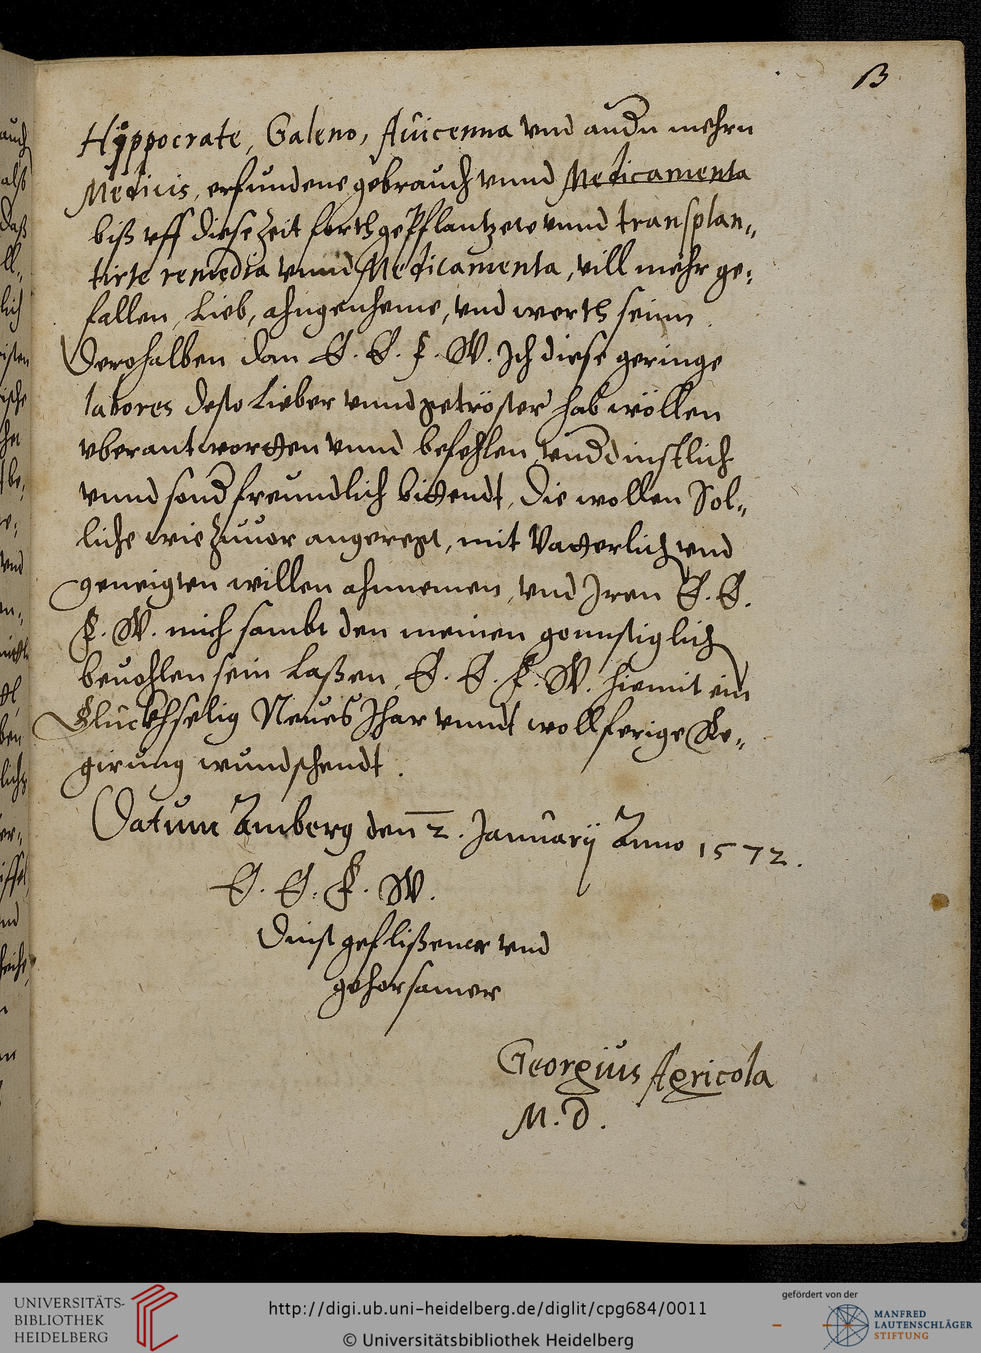 13
Hyppocrate, Galeno, Auicenna vnd andn mehrn
Medicis, erfundene gebrauch vnnd Medicamenta
biß vff diese Zeit forthgePflantzete vnnd transplan„
tirte remedia vnnd Medicamenta, vill mehr ge„
fallen, Lieb, ahngenheme, vnd werth seinn.
Derohalben dan E. E. F. W. Ich diese geringe
labores desto Lieber vnnd getröster hab wöllen
vberantwortten vnnd befehlen, vnd dinstlich
vnnd sond freundlich bittendt, die wollen Sol„
liche wie Zuuor angeregt, mit Vatterlich vnd
geneigten willen ahnnemen, vnd Iren E. E.
F. W. mich sambt den meinen gonnstiglich
beuohlen sein Laßen, E. E. F. W. hiemit ein
Gluckhselig Neues Ihar vnndt wollferige Re„
girung wundschendt.
Datum Amberg den 2. Januarij Anno 1572.
E. E. F. W.
Dinst geflißener vnd
gehorsamer
Georgius Agricola
M. D.
UNIVERSITÄTS-
BIBLIOTHEK
HEIDELBERG
http://digi.ub.uni-heidelberg.de/diglit/cpg684/0011
© Universitätsbibliothek Heidelberg
gefördert von der
MANFRED
LAUTENSCHLÄGER
STIFTUNG